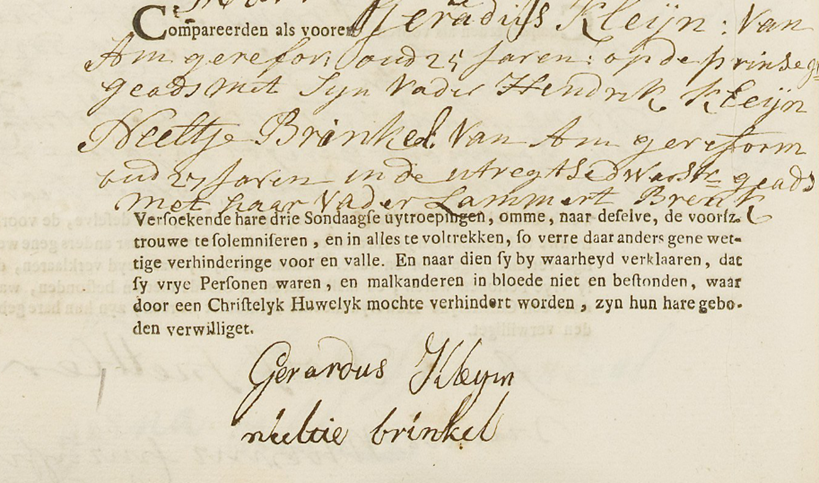 Compareerden als vooren Geradus Kleijn: Van
Am gerefor: oud 25 Jaren: op de prinse gr
geads mit Syn Vader Hendrik Kleijn
Neeltje Brinkel. Van Am gereform
oud 27 Jaren in de utregtsedwarstr geads
met haar Vader Lammert Brenk
Verſoekende hare drie Sondaagſe uytroepingen, omme, naar deſelve, de voorſz.
trouwe te ſolemniſeren, en in alles te voltrekken, ſo verre daar anders gene wet-
tige verhinderinge voor en valle. En naar dien ſy by waarheyd verklaaren, dat
ſy vrye Perſonen waren, en malkanderen in bloede niet en beſtonden, waar
door een Chriſtelyk Huwelyk mochte verhindert worden, zyn hun hare gebo-
den verwilliget.
Gerardus Kleyn
neeltie brinkel